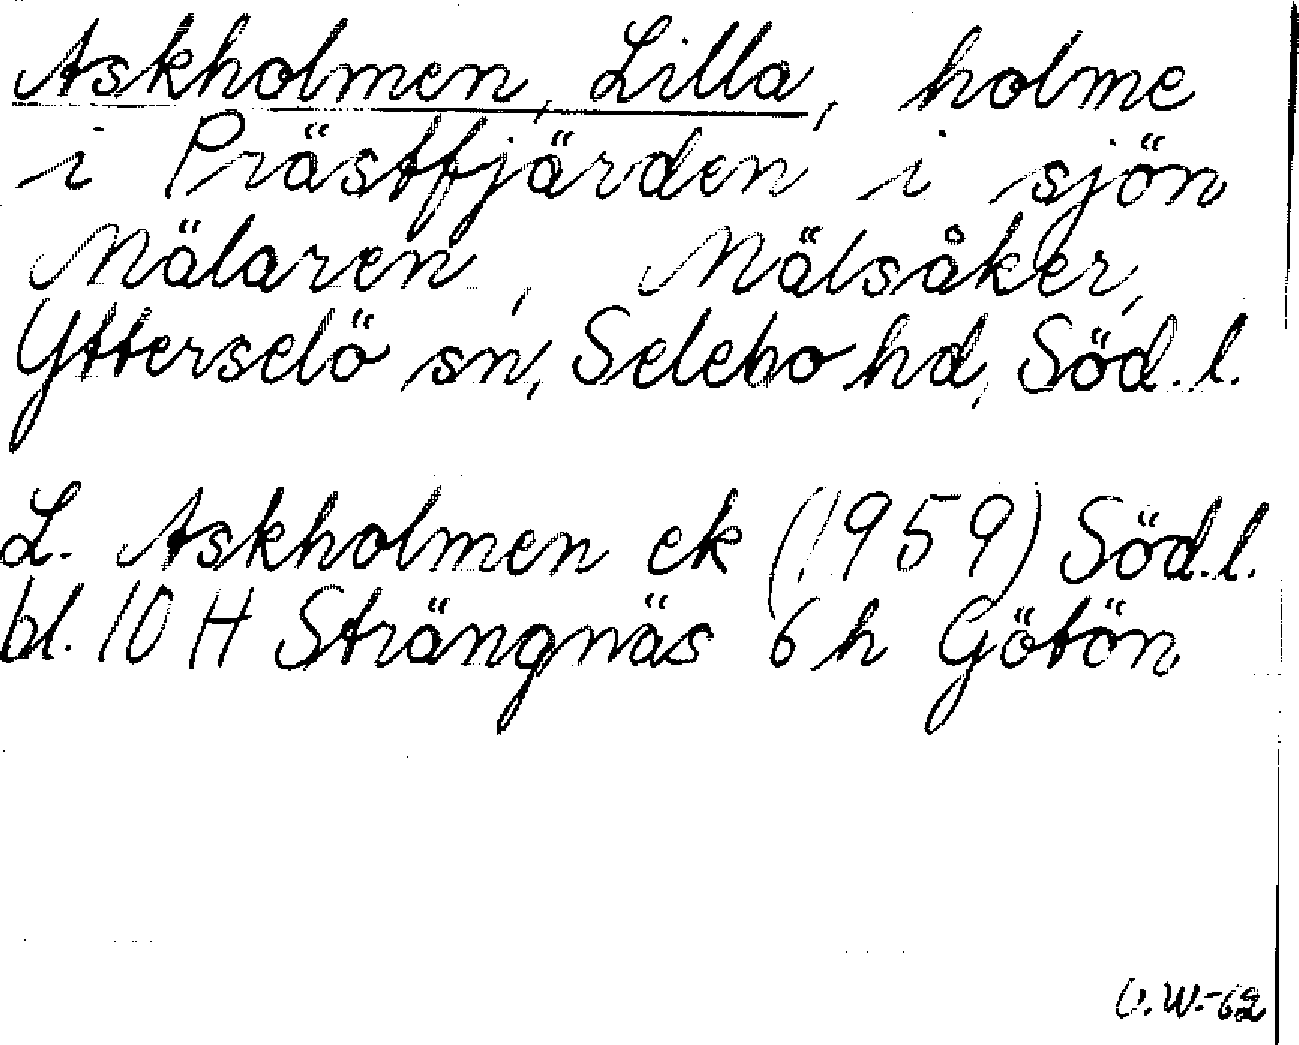 Askholmen, Lilla, holme
i Prästfjärden i sjön
Mälaren, Mälsåker,
Ytterselö sn, Selebo hd, Söd. l.
L. Askholmen ek (1959) Söd. l.
bl. 10 H Strängnäs 6 h Götön
U. W.-62